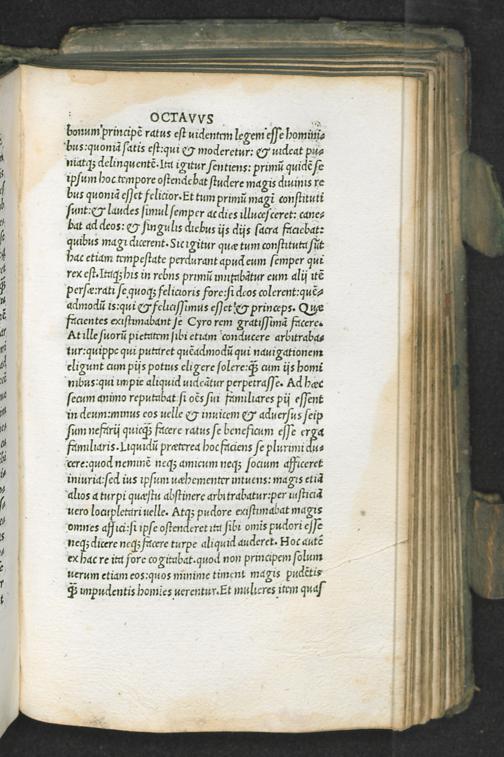 OCTAVVS
bonum principē ratus est uidentem legem esse homini-
bus: quoniā satis est: qui & moderetur: & uideat pu-
niatq; delinquentē. Ita igitur sentiens: primū quidē se
ipsum hoc tempore ostendebat studere magis diuinis re
bus quoniā esset felicior. Et tum primū magi constituti
sunt: & laudes simul semper ac dies illucesceret: cane-
bat ad deos: & singulis diebus ijs dijs sacra faciebāt:
quibus magi dicerent. Sic igitur quæ tum constituta sūt
hac etiam tempestate perdurant apud eum semper qui
rex est. Itaq; his in rebns primū imitabātur eum alij itē
persæ: rati se quoq; felicioris fore: si deos colerent: quē-
admodū is: qui & felicissimus esset & princeps. Quæ
facientes existimabant se Cyro rem gratissimā facere.
At ille suorū pietatem sibi etiam conducere arbitraba-
tur: quippe qui putaret quēadmodū qui nauigationem
eligunt cum pijs potius eligere solere: q̄ cum ijs homi
nibus: qui impie aliquid uideātur perpetrasse. Ad hæc
secum animo reputabat: si oēs sui familiares pij essent
in deum: minus eos uelle & inuicem & aduersus seip
sum nefarij quicq̄ facere ratus se beneficum esse erga
familiaris. Liquidū præterea hoc faciens se plurimi du-
cere: quod neminē neq; amicum neq; socium afficeret
iniuria: sed ius ipsum uæhementer intuens: magis etiā
alios a turpi quæstu abstinere arbitrabatur: per iusticiā
uero locupletari uelle. Atq; pudore existimabat magis
omnes affici: si ipse ostenderet ita sibi omīs pudori esse
neq; dicere neq; facere turpe aliquid auderet. Hoc autē
ex hac re ita fore cogitabat. quod non principem solum
uerum etiam eos: quos minime timent magis pudētis
q̄ impudentis homīes uerentur. Et mulieres item quas